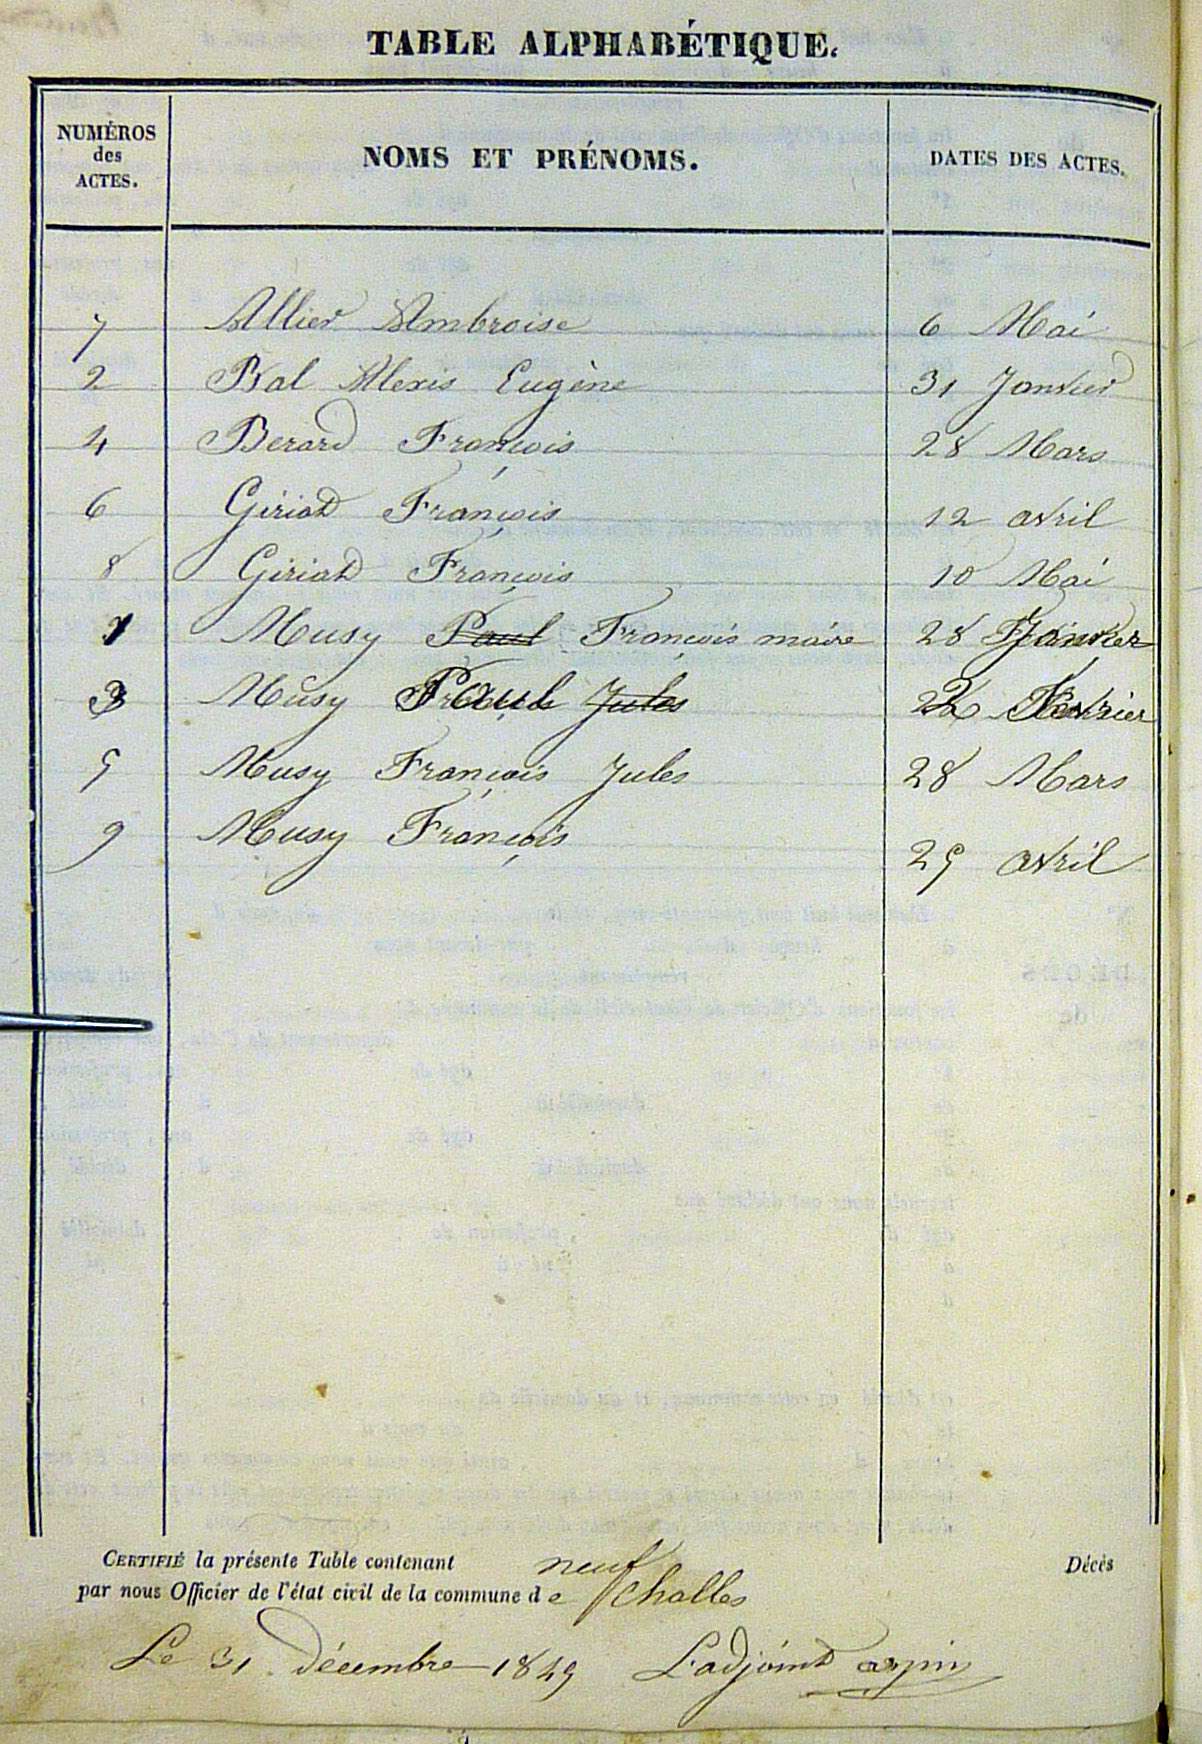 TABLE ALPHABÉTIQUE.
NUMÉROS des ACTES. NOMS ET PRÉNOMS. DATES DES ACTES.
7 Allier Ambroise 6 Mai
2 Bal Alexis Eugène 31 Janvier
4 Berard François 28 Mars
6 Giriad François 12 avril
8 Giriad François 10 Mai
1 Musy Paul François maire 28 Janvier
3 Musy Paul Jules Fevrier
5 Musy François Jules 28 Mars
9 Musy François 29 avril
CERTIFIÉ la présente Table contenant neuf Décès
par nous Officier de l'état civil de la commune de Challes
Le 31 décembre 1849 L'adjoint arpin